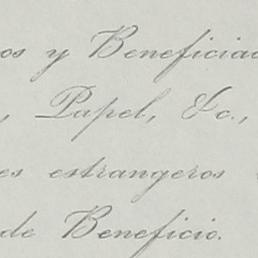 os y Beneficiad
, Papel, &c.,
es estrangeros
de Beneficio.